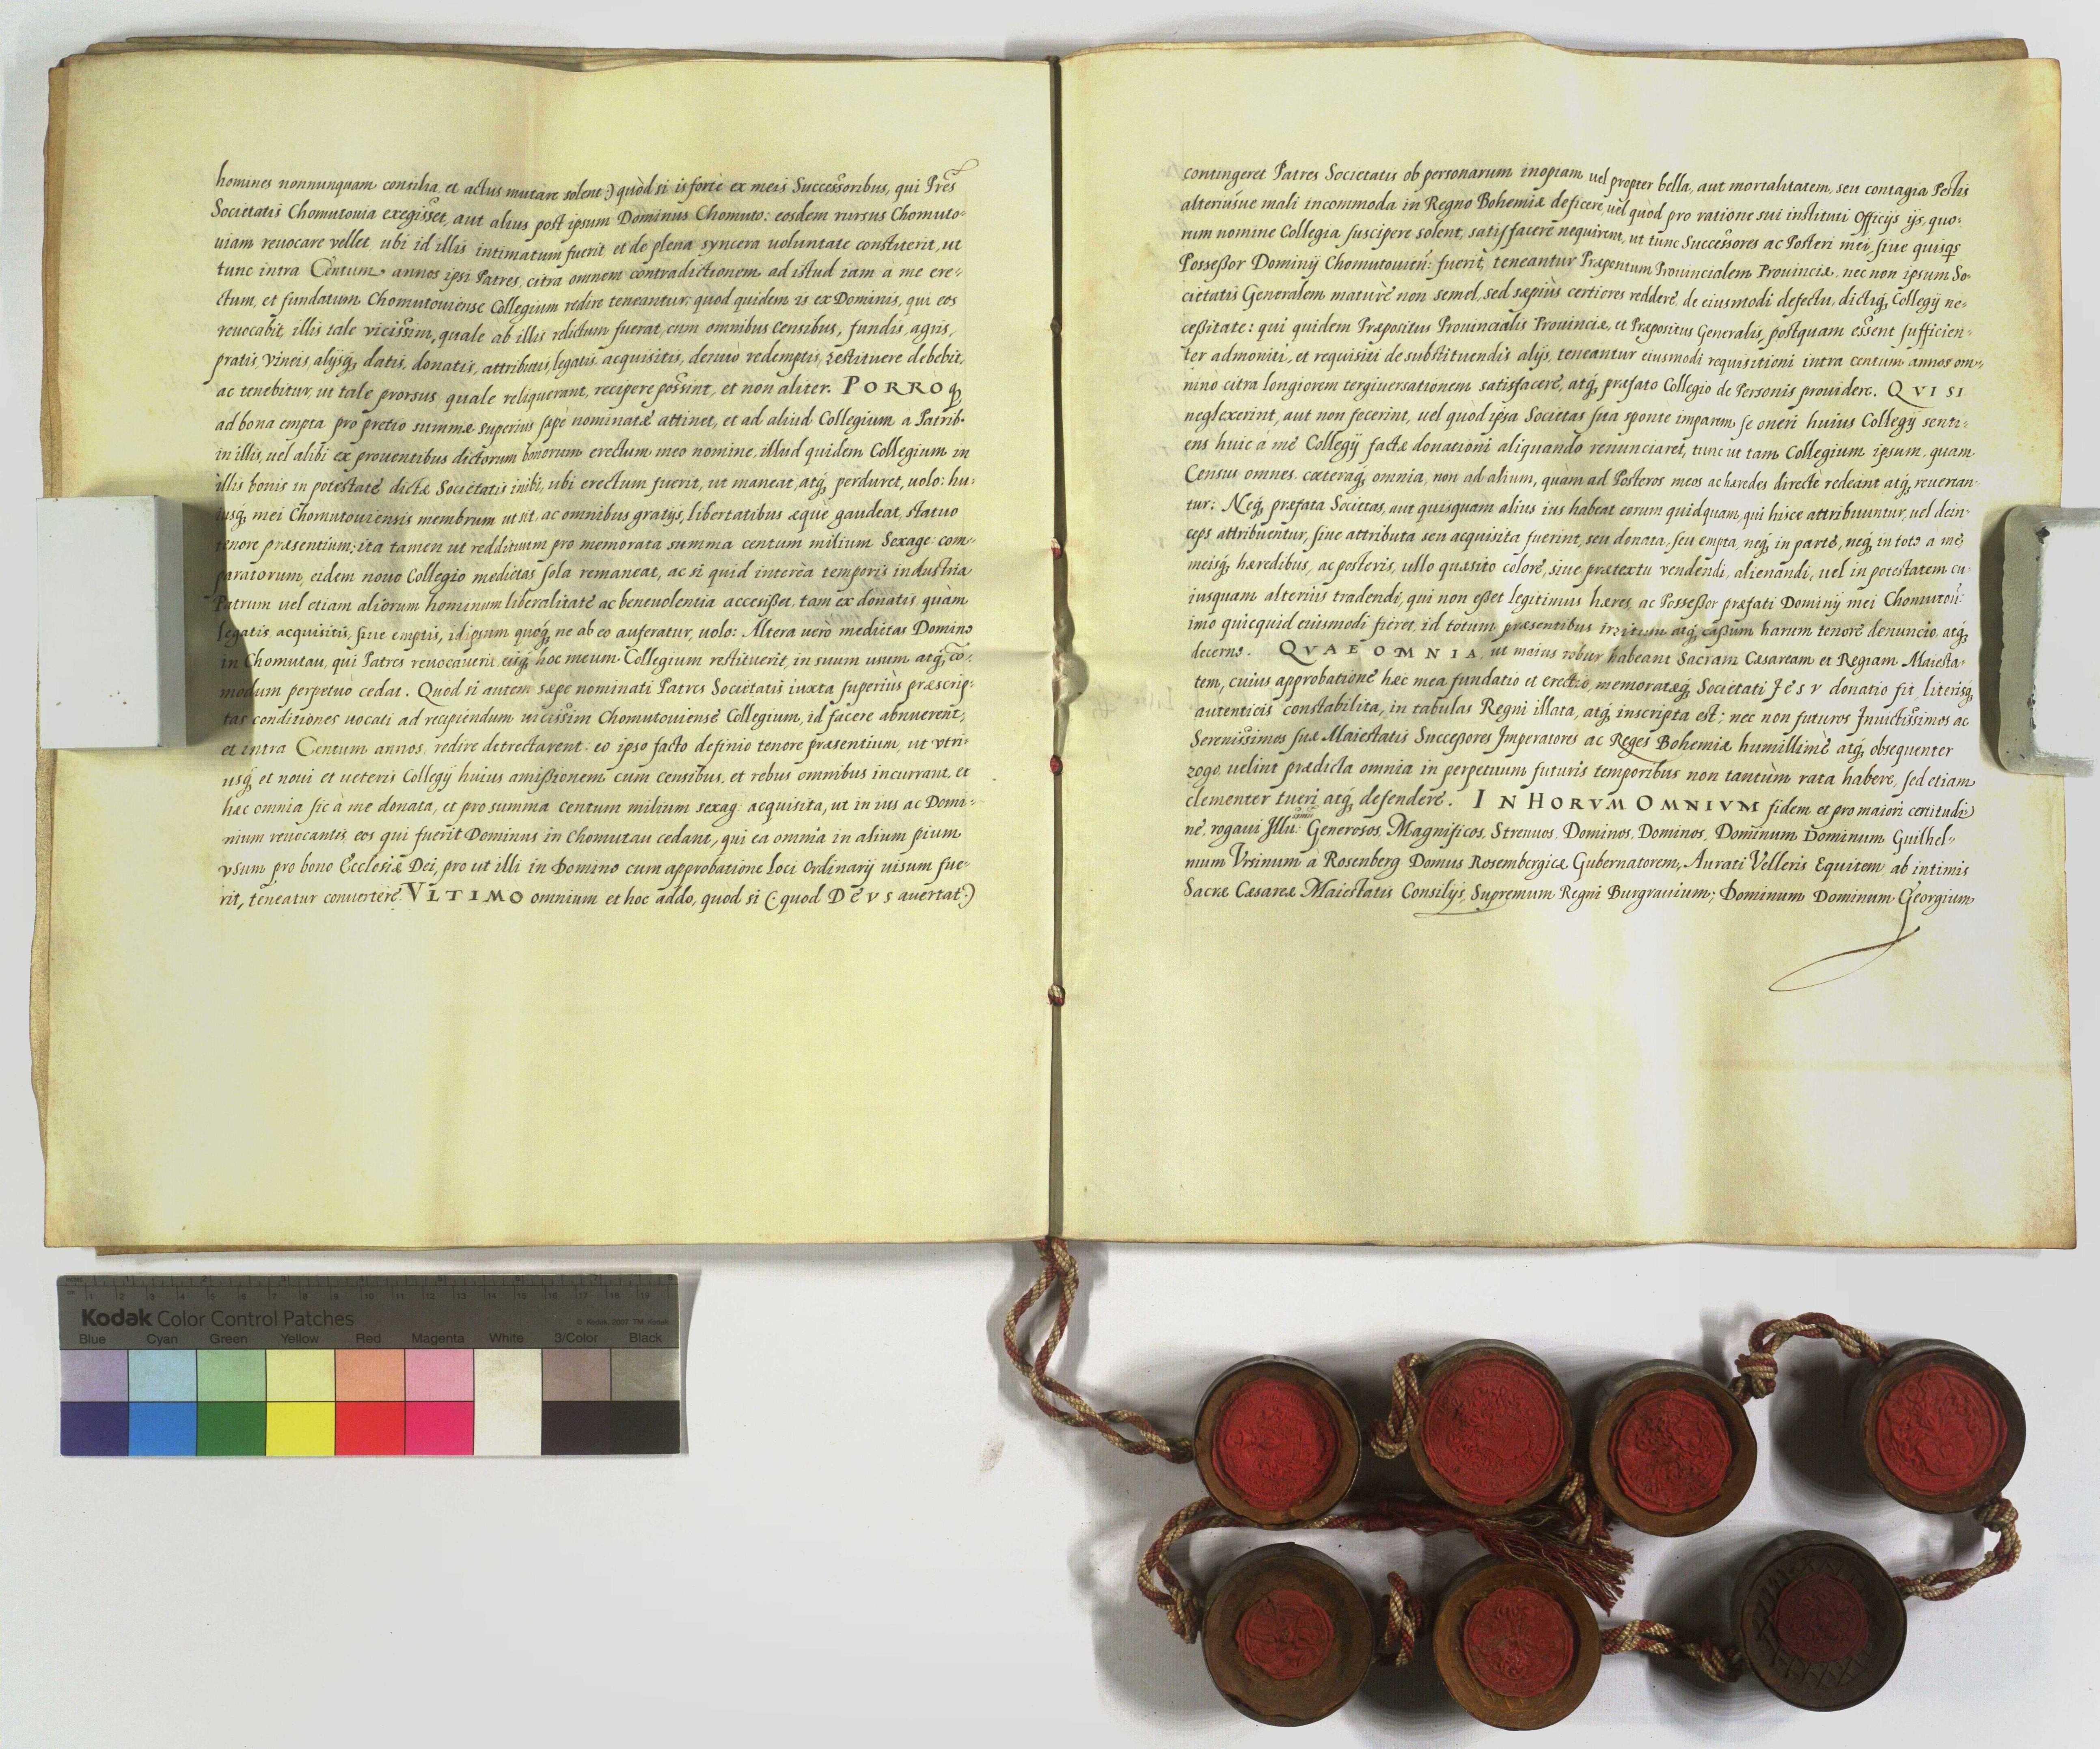 homines nonnunquam consilia et actus mutare solent:) quòd si is fortè ex meis Successoribus, qui Pres
Societatis Chomutouia exegisset, aut alius post ipsum Dominus Chomuto: eosdem rursus Chomuto-
uiam reuocare vellet, ubi id illis intimatum fuerit et de plena syncera uoluntate constiterit, ut
tunc intra Centum annos ipsi Patres, citra omnem contradictionem ad istud iam à me ere-
ctum, et fundatum Chomutouiense Collegium redire teneantur: quod quidem is ex Dominis, qui eos
reuocabit, illis tale vicissim, quale ab illis relictum fuerat, cum omnibus censibus, fundis, agris,
pratis, vineis, alijsq, datis, donatis, attributis, legatis, acquisitis, denuò redemptis, restituere debebit,
ac tenebitur, ut tale prorsus quale reliquerant, recipere possint, et non aliter. PORRO q
ad bona empta pro pretio summæ superius sæpè nominatæ attinet, et ad aliud Collegium a Patrib.
in illis, uel alibi ex prouentibus dictorum bonorum erectum meo nomine, illud quidem Collegium in
illis bonis in potestate dictæ Societatis inibi, ubi erectum fuerit, ut maneat, atq, perduret, uolo: hu-
iusq, mei Chomutouiensis membrum ut sit, ac omnibus gratijs, libertatibus æque gaudeat, statuo
tenore præsentium; ita tamen ut reddituum pro memorata summa centum milium Sexage: com-
paratorum, eidem nouo Collegio medietas sola remaneat, ac si quid interèa temporis industria
Patrum uel etiam aliorum hominum liberalitate ac beneuolentia accesisset, tam ex donatis, quam
legatis, acquisitis, siue emptis, id ipsum quoq, ne ab eo auferatur, uolo: Altera uerò medietas Domino
in Chomutau, qui Patres reuocauerit, eisq, hoc meum Collegium restituerit, in suum usum atq, co-
modum perpetuò cedat. Quòd si autem sæpe nominati Patres Societatis iuxta superiùs præscrip-
tas conditiones uocati ad recipiendum uicissim Chomutouiense Collegium, id facere abnuerent,
et intra Centum annos, redire detrectarent: eo ipso facto definio tenore præsentium, ut vtri-
usq, et noui et ueteris Collegij huius amissionem cum censibus, et rebus omnibus incurrant, et
hæc omnia sic à me donata, et pro summa centum milium sexag: acquisita, ut in ius ac Domi-
nium reuocantis eos qui fuerit Dominus in Chomutau cedant, qui ea omnia in alium pium
vsum pro bono Ecclesiæ Dei, pro ut illi in Domino cum approbatione Loci Ordinarij uisum fue-
rit, teneatur conuertere. VLTIMO omnium et hoc addo, quod si (: quod DEVS auertat:)
contingeret Patres Societatis ob personarum inopiam uel propter bella, aut mortalitatem, seu contagia Pestis
alteriusue mali incommoda in Regno Bohemiæ deficere, uel quòd pro ratione sui instituti Officijs ijs, quo-
rum nomine Collegia suscipere solent, satisfacere nequirent, ut tunc Successores ac Posteri mei, siue quisqs
Possessor Dominij Chomutouien: fuerit, teneantur Præpositum Prouincialem Prouinciæ, nec non ipsum So-
cietatis Generalem maturè non semel, sed sæpius certiores reddere, de eiusmodi defectu, dictiq, Collegij ne-
cessitate: qui quidem Præpositus Prouincialis Prouinciæ, et Præpositus Generalis, postquam essent sufficien-
ter admoniti, et requisiti de substituendis alijs, teneantur eiusmodi requisitioni intra centum annos om-
nino citra longiorem tergiuersationem satisfacere, atq, præfato Collegio de Personis prouidere. QVI SI
neglexerint, aut non fecerint, uel quòd ipsa Societas sua sponte imparem se oneri huius Collegij senti-
ens huic à me Collegij factæ donationi aliquando renunciaret, tunc ut tam Collegium ipsum, quam
Census omnes, cæteraq, omnia, non ad alium, quàm ad Posteros meos ac hæredes directè redeant atq, reuertan-
tur: Neq, præfata Societas, aut quisquam alius ius habeat eorum quidquam, qui hisce attribuuntur, uel dein-
ceps attribuentur, siue attributa seu acquisita fuerint, seu donata, seu empta, neq, in parte, neq, in toto a me,
meisq, hæredibus, ac posteris, ullo quæsito colore, siue prætextu vendendi, alienandi, uel in potestatem cu-
iusquam alterius tradendi, qui non esset legitimus hæres, ac Possessor præfati Dominij mei Chomuton:
imo quicquid eiusmodi fieret, id totum præsentibus irritum atq, cassum harum tenore denuncio, atq,
decerno. QVAE OMNIA, ut maius robur habeant Sacram Cæsaream et Regiam Maiesta-
tem, cuius approbatione hæc mea fundatio et erectio, memoratæq, Societati JESV donatio fit, literisq,
autenticis constabilita, in tabulas Regni illata, atq, inscripta est; nec non futuros Inuictissimos ac
Serenissimos suæ Maiestatis Successores Imperatores ac Reges Bohemiæ humillimè atq, obsequenter
rogo, uelint prædicta omnia in perpetuum futuris temporibus non tantùm rata habere, sed etiam
clementer tueri, atq, defendere. IN HORVM OMNIVM fidem et pro maiori certitudi
ne, rogaui Illu: Generosos, Magnificos, Strenuos, Dominos, Dominos, Dominum Dominum Guilhel-
mum Vrsinum à Rosenberg Domus Rosembergicæ Gubernatorem, Aurati Velleris Equitem, ab intimis
Sacræ Cæsareæ Maiestatis Consilijs, Supremum Regni Burgrauium; Dominum Dominum Georgium
Kodak Color Control Patches
© Kodak, 2007 TM: Kodak
Blue Cyan Green Yellow Red Magenta White 3/Color Black